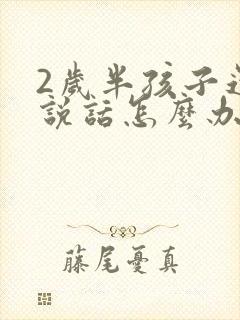 2歲半孩子
說話怎麼办
藤尾憂真